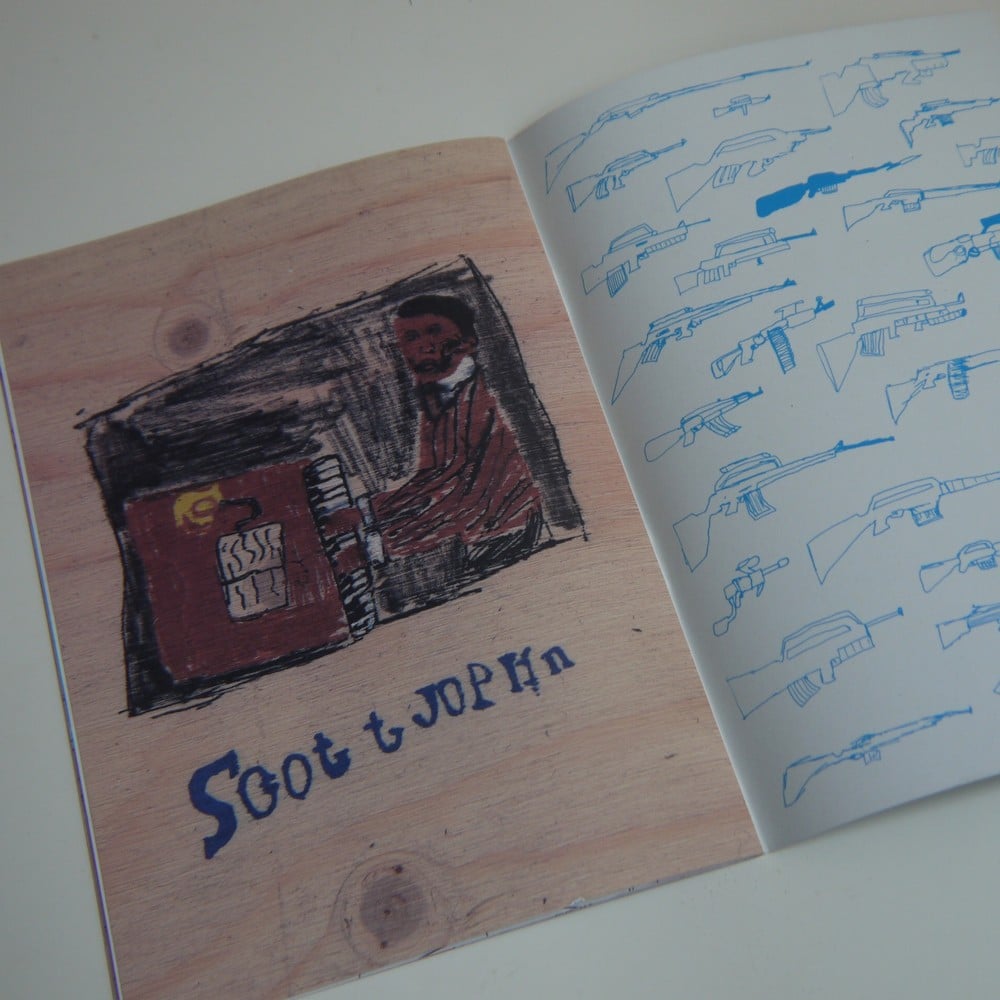 Scot t JOPHn